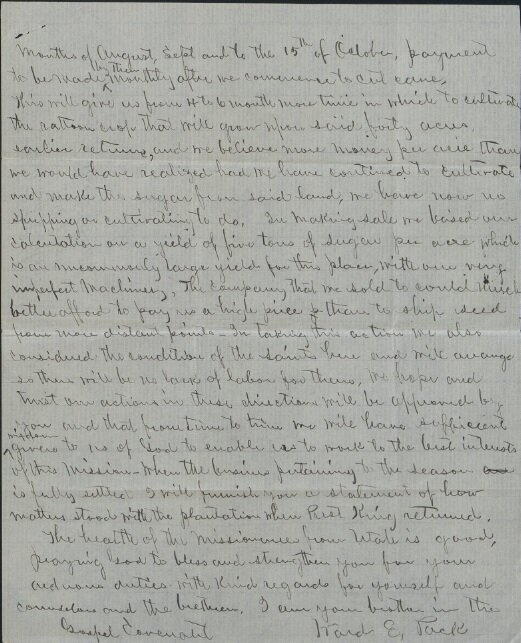 months of August, Sept and to the 15th of October, payment
to be made by them monthly after we commence to cut cane.
This will give us from 4 to 6 month more time in which to cultivate
the rattoon crop that will grow upon said forty acres,
earlier returns, and we believe more money per acre than
we would have realized had we have continued to cultivate
and make the sugar from said land, we have now no
stripping or cultivating to do. In making sale we based our
calculation on a yield of five tons of sugar per acre which
is an uncommonly large yield for this place, with our very
imperfect Machinery, The company that we sold to could much
better afford to pay us a high price than to ship seed
from more distant points - In taking this action we also
considered the condition of the saints here and will arrange
so there will be no lack of labor for them, we hope and
trust our actions in these directions will be approved by
you and that from time to time we will have sufficient
wisdom given to us of God to enable us to work to the best interests
of this Mission - When the business pertaining to the season
is fully settled I will furnish you a statement of how
matters stood with the plantation when Prest King returned.
The health of the missionaries from Utah is good,
praying God to bless and strengthen you for your
arduous duties with kind regards for yourself and
counselors and the brethren, I am your brother in the
Gospel Covenant Ward E. Pack